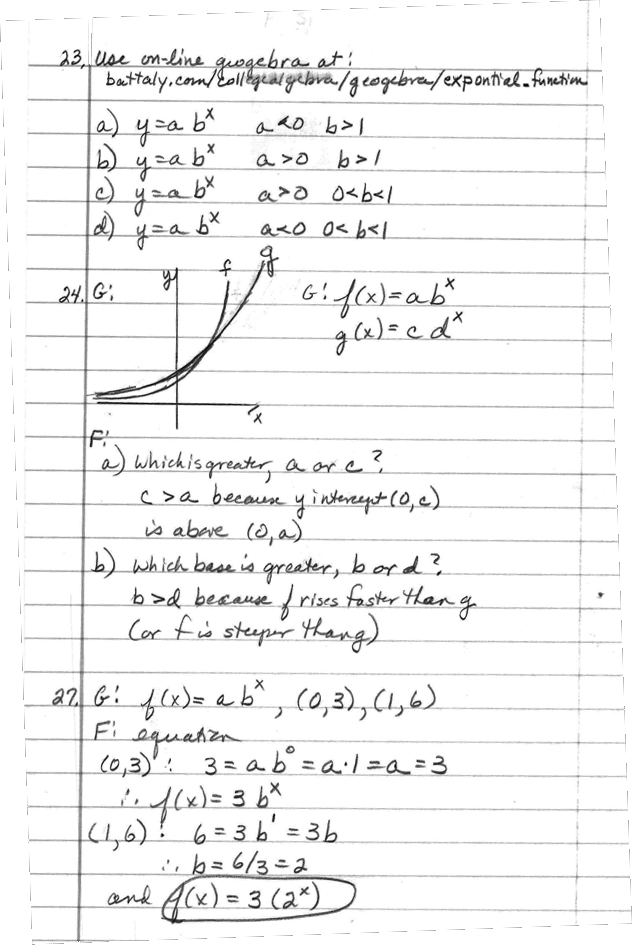 23. Use on-line geogebra at:
battaly.com/collegealgebra/geogebra/expontial-function
a) y=a b^x a<0 b>1
b) y=a b^x a>0 b>1
c) y=a b^x a>0 0<b<1
d) y=a b^x a<0 0<b<1
24. G: y f g G: f(x)=ab^x
g(x)=c d^x
x
F:
a) Which is greater, a or c?
c>a because y intercept (0,c)
is above (0,a)
b) Which base is greater, b or d?
b>d because f rises faster than g
(or f is steeper than g)
27. G: f(x)= a b^x, (0,3), (1,6)
F: equation
(0,3): 3=ab^0=a·1=a=3
∴ f(x)=3 b^x
(1,6): 6=3b^1=3b
∴ b=6/3=2
and f(x)=3(2^x)